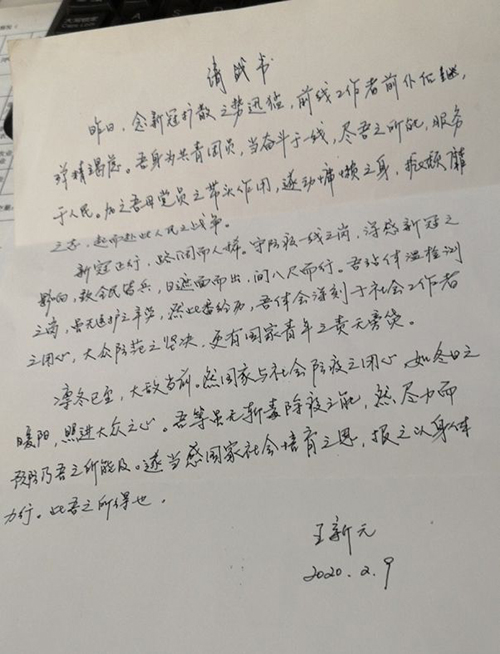 请战书
昨日，念新冠扩散之势迅猛，前线工作者前仆后继，
殚精竭虑。吾身为共青团员，当奋斗于一线，尽吾之所能，服务
于人民。加之吾母党员之带头作用，遂动慵懒之身，振颓靡
之志，起而赴此人民之战争。
新冠正行，路闭而人稀。守防疫一线之岗，深感新冠之
影响，致全民皆兵，日遮面而出，间八尺而行。吾站体温检测
之岗，虽无医护之辛劳，然此番经历，吾体会深刻于社会工作者
之用心，大众防范之坚决，更有国家青年之责无旁贷。
凛冬已至，大敌当前。然国家与社会防疫之用心，如冬日之
暖阳，照进大众之心。吾等虽无斩毒除疫之能，然尽力而
预防乃吾之所能及。遂当感国家社会培育之恩，报之以身体
力行。此吾之所得也。
王新元
2020.2.9